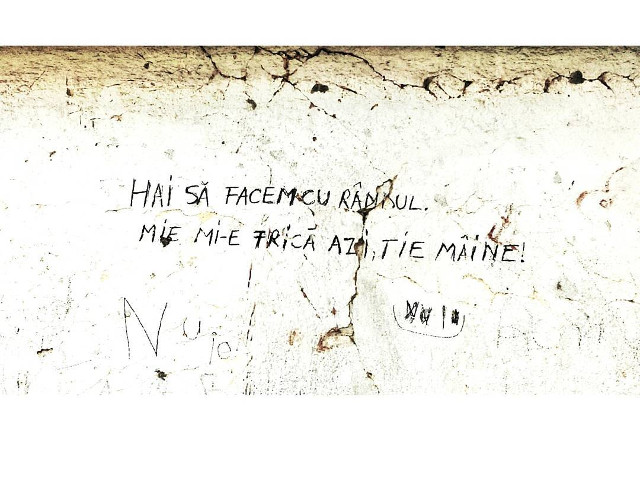 HAI SĂ FACEM CU RÂNDUL.
MIE MI-E FRICĂ AZI, TIE MÂINE!